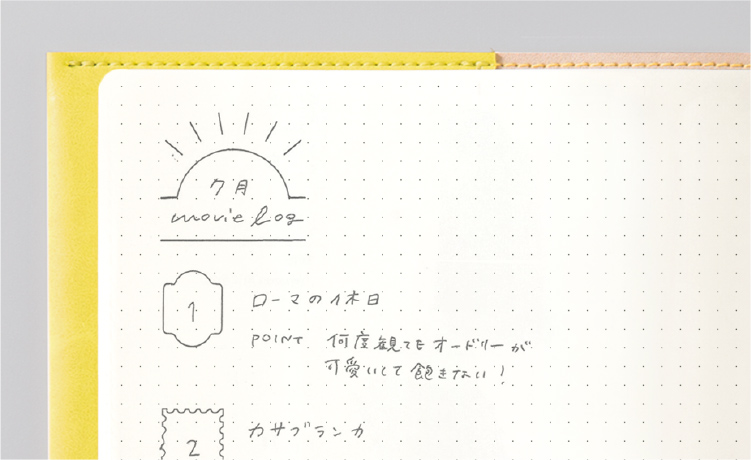 7月
movie log
1
ローマの休日
POINT 何度観てもオードリーが
可愛いくて飽きない!
2
カサブランカ